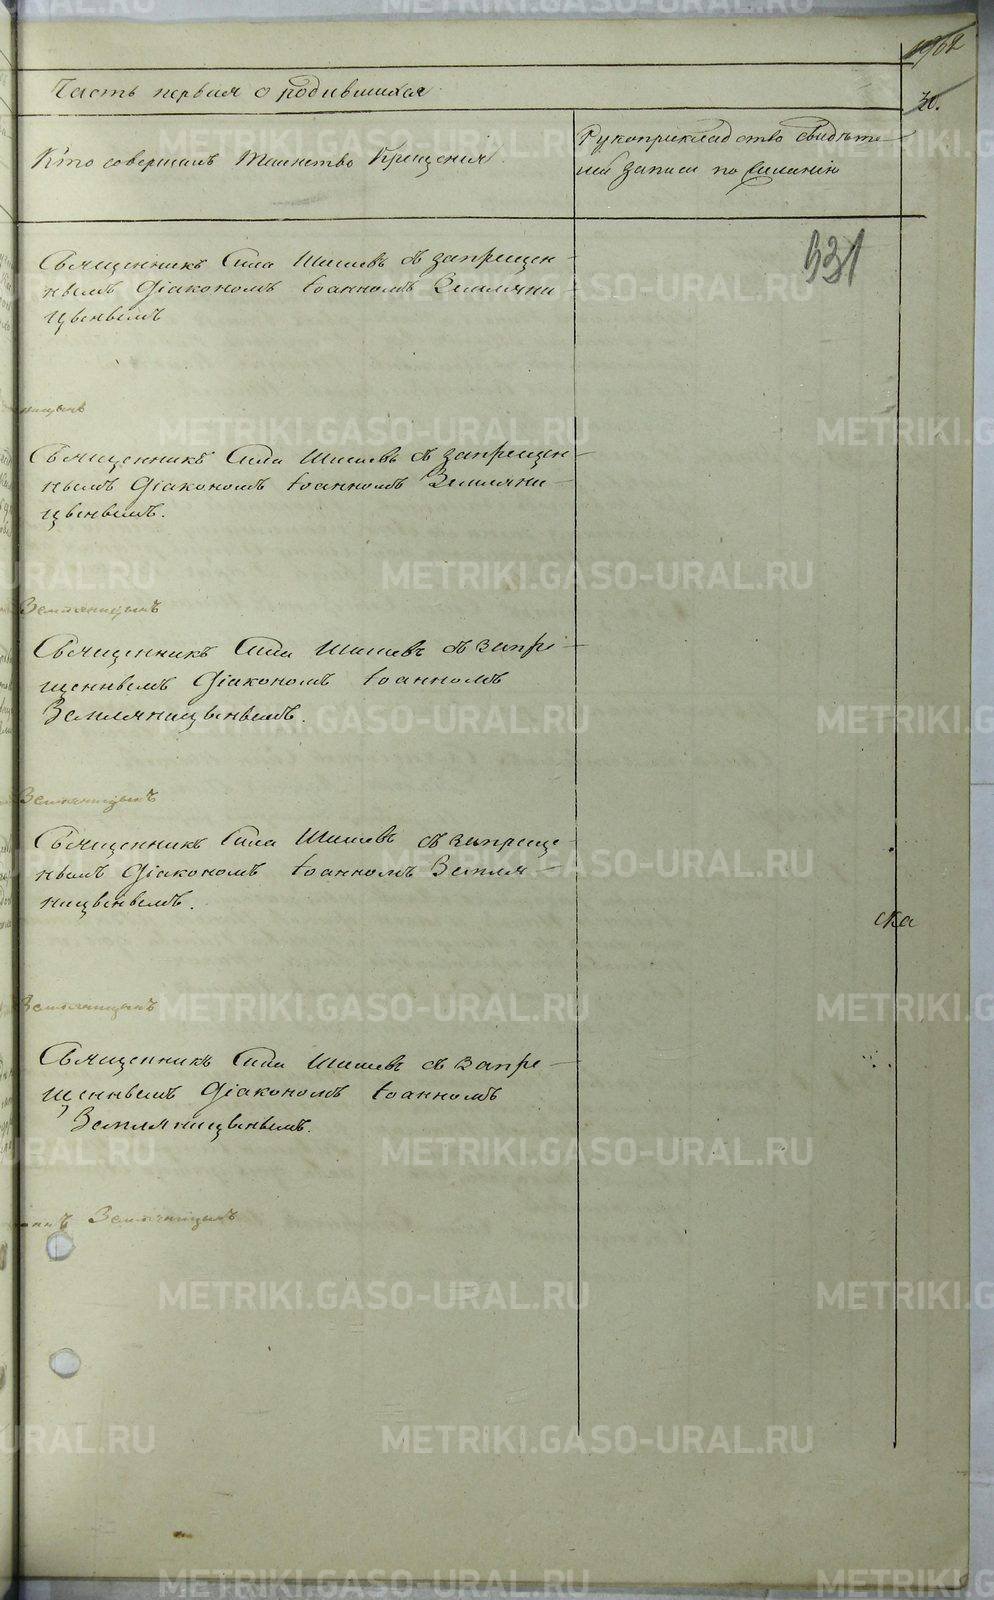 Часть первая о родившихся
30.
Кто совершалъ таинство крещенія.
Рукоприкладство свидѣте-
лей записи по желанію
931
Священникъ Сила Шишевъ съ запрещен-
нымъ Діакономъ Іоанномъ Земляни-
цынымъ
ницынъ
Священникъ Сила Шишевъ съ запрещен-
нымъ Діакономъ Іоанномъ Земляни-
цынымъ.
Земляницынъ
Священникъ Сила Шишевъ съ запре-
щеннымъ Діакономъ Іоанномъ
Земляницынымъ.
Земляницынъ
Священникъ Сила Шишевъ съ запреще-
нымъ Діакономъ Іоанномъ Земля-
ницынымъ.
ска
Земляницынъ
Священникъ Сила Шишевъ съ запре-
щеннымъ Діакономъ Іоанномъ
Земляницынымъ.
Земляницынъ
METRIKI.GASO-URAL.RU